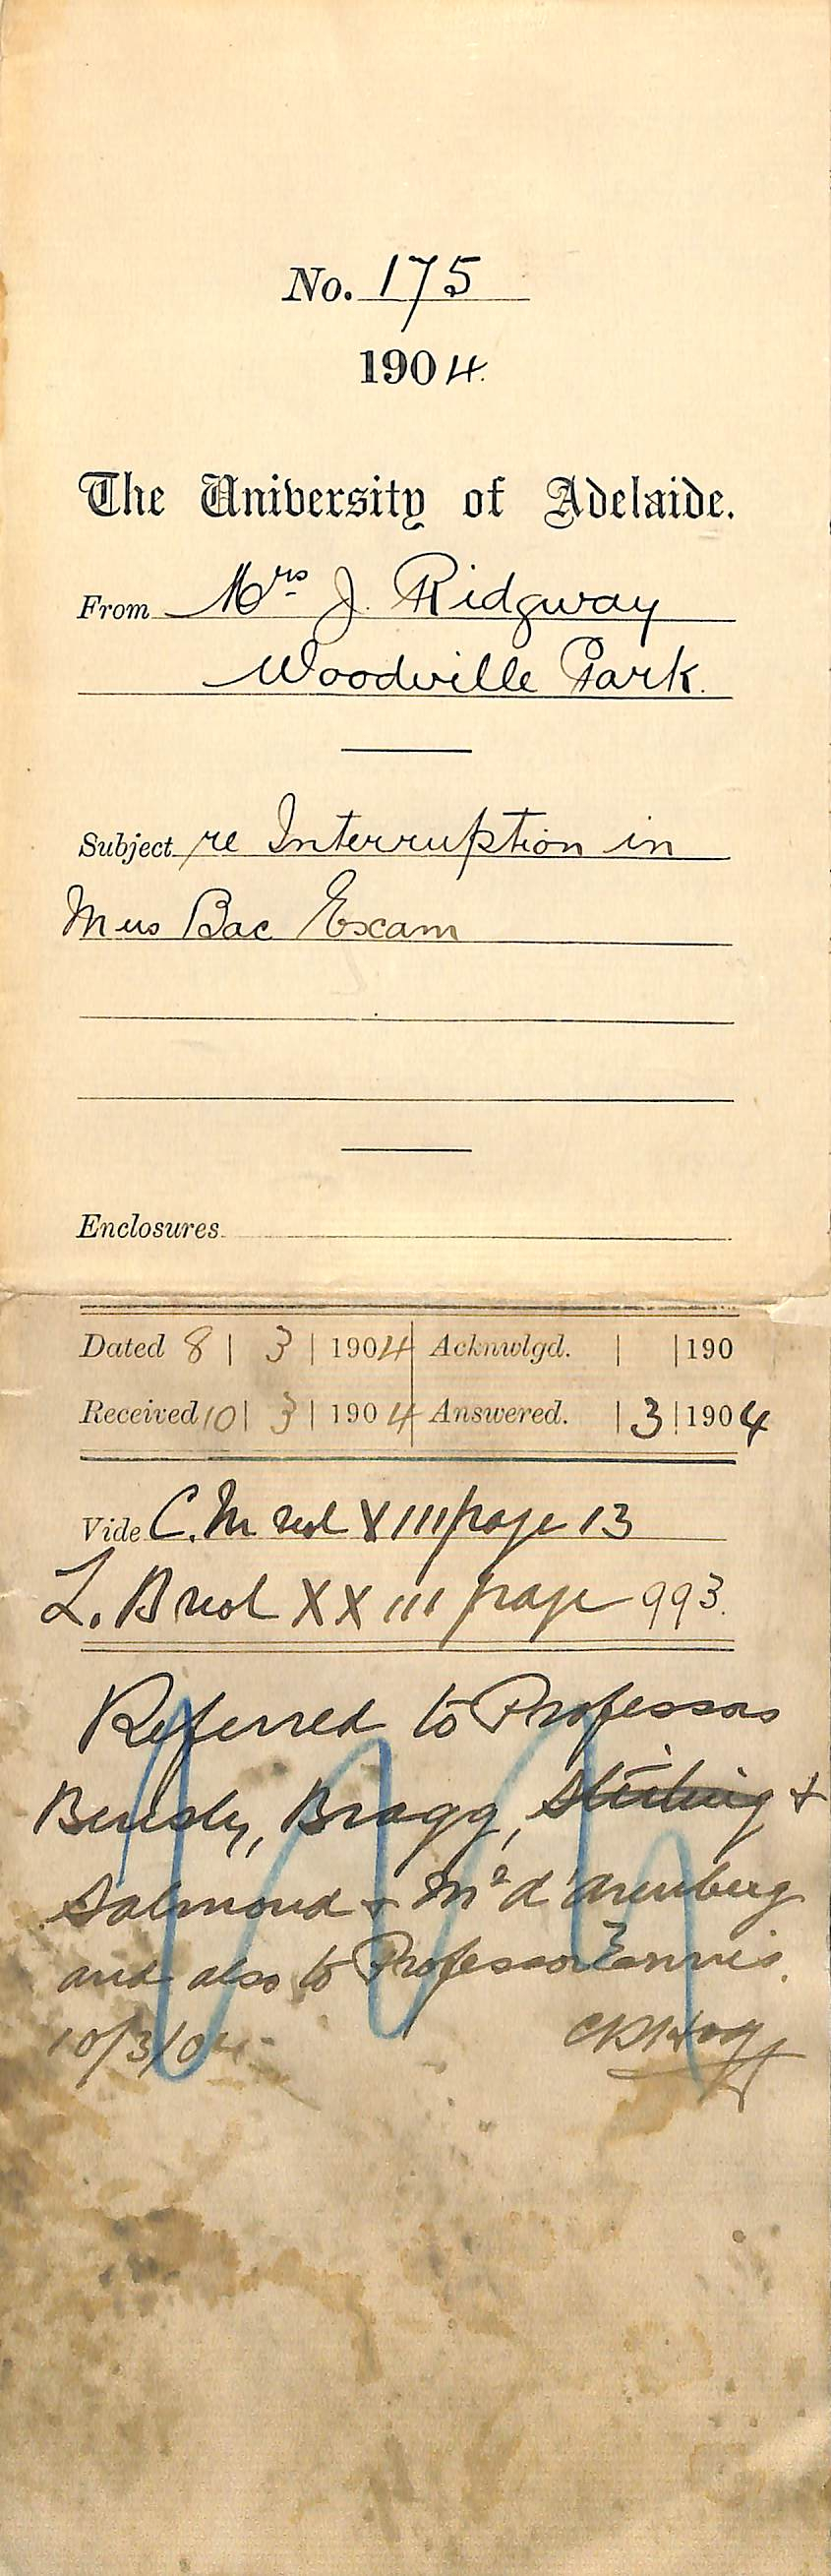 No. 175
1904.
The University of Adelaide.
From Mrs J. Ridgway
Woodville Park.
Subject re Interruption in
Mus Bac Exam
Enclosures.
Dated 8 | 3 | 1904 Acknwlgd. | | 190
Received 10 | 3 | 1904 Answered. | 3 | 1904
Vide C.M vol XIII page 13
L.B vol XXIII page 993.
Referred to Professors
Bensly, Bragg, Stirling +
Salmond + Mr d'Arenberg
and also to Professor Ennis.
10/3/04